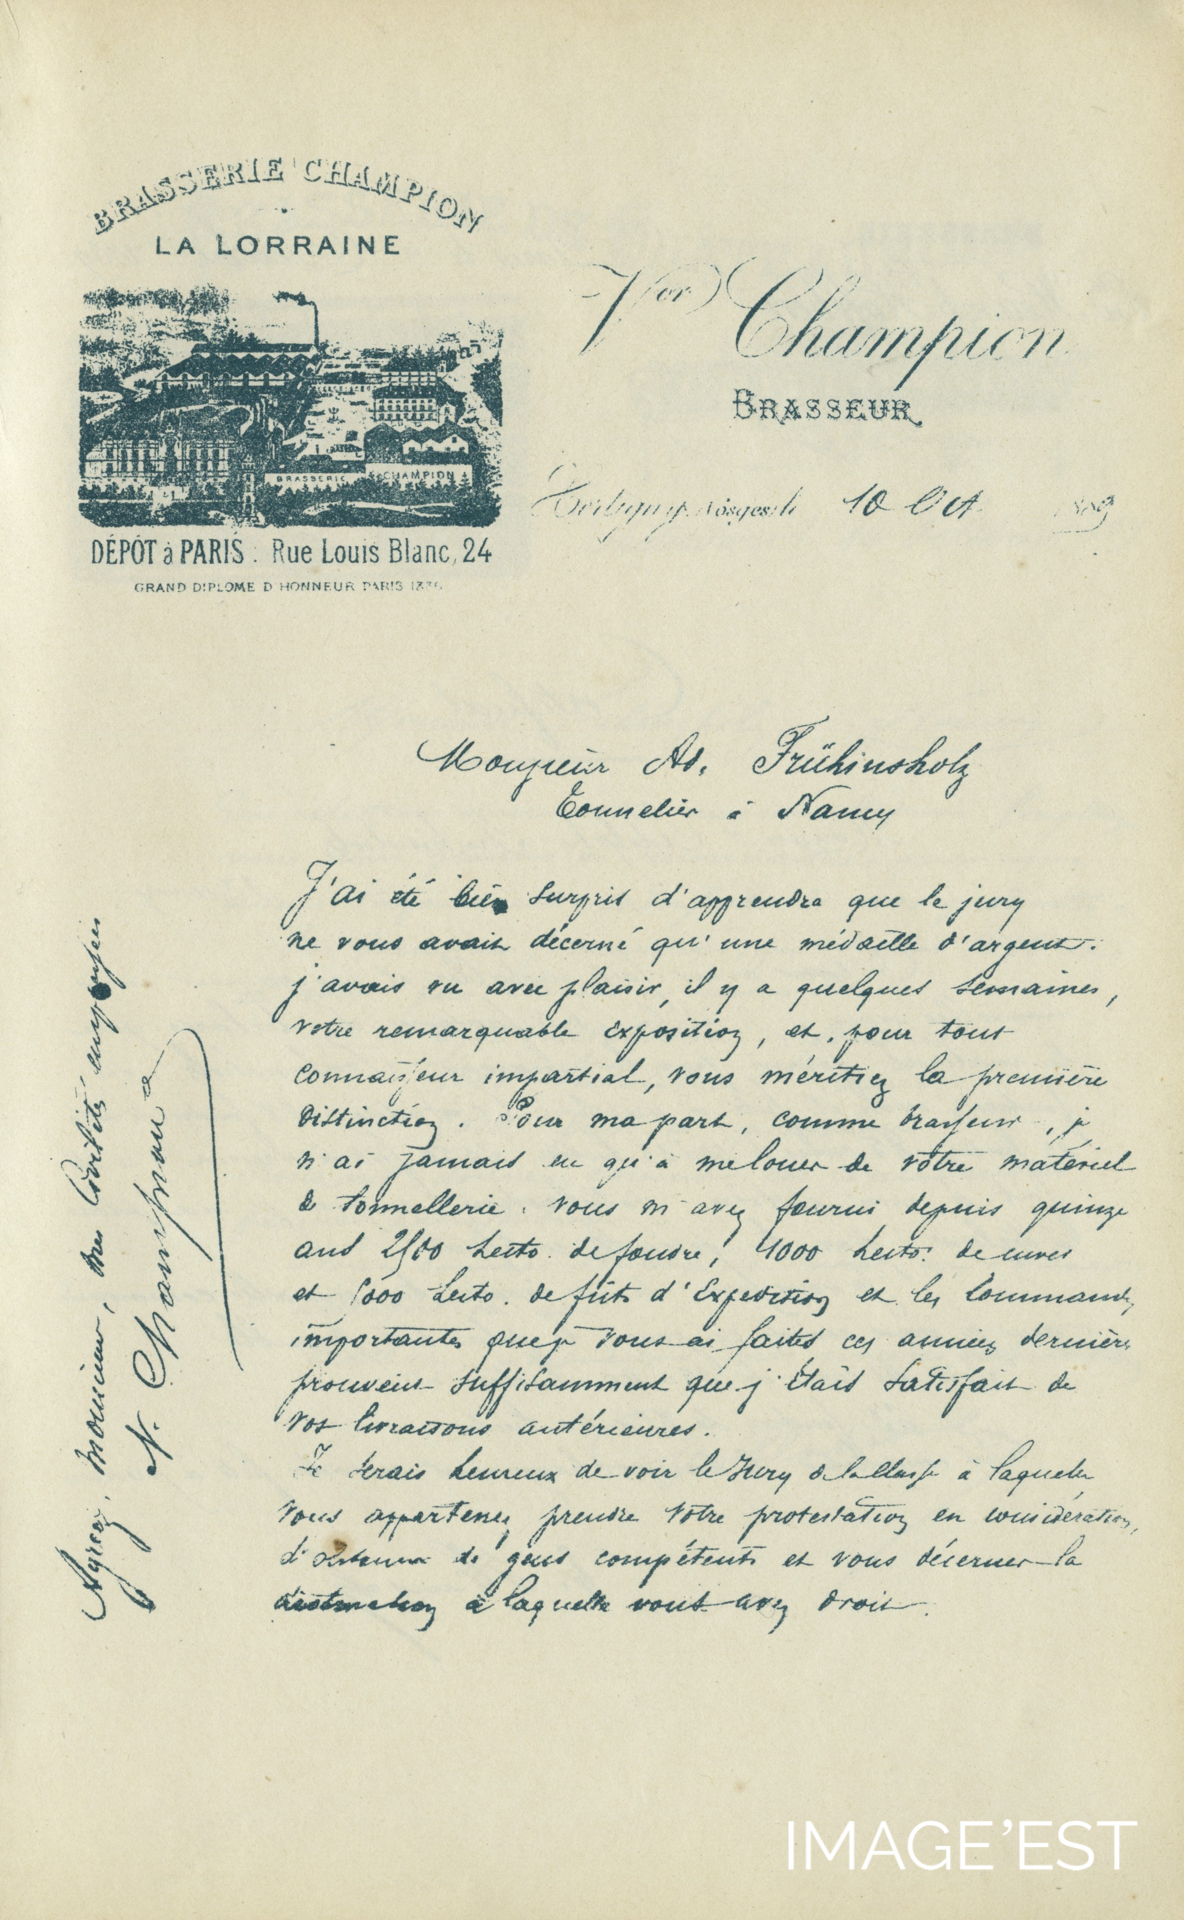 BRASSERIE CHAMPION
LA LORRAINE
BRASSERIE CHAMPION
DÉPÔT à PARIS : Rue Louis Blanc, 24
GRAND DIPLOME D HONNEUR PARIS
Vor Champion
BRASSEUR
10 Oct 1889
Monsieur Ad. Frühinsholz
Tonnelier à Nancy
J'ai été bien surpris d'apprendre que le jury
ne vous avait décerné qu'une médaille d'argent.
j'avais vu avec plaisir, il y a quelques semaines,
votre remarquable exposition, et, pour tout
connaisseur impartial, vous méritiez la première
distinction. Pour ma part, comme brasseur, je
n'ai jamais eu qu'à me louer de votre matériel
de tonnellerie. vous m'avez fourni depuis quinze
ans hecto. de foudre, 1000 hecto. de cuves
et hecto. de fûts d'Expédition et les commandes
importantes que je vous ai faites ces années dernières
prouvent suffisamment que j'étais satisfait de
vos livraisons antérieures.
Je serais heureux de voir le Jury de la Classe à laquelle
vous appartenez prendre votre protestation en considération,
de gens compétents et vous décerner la
distinction à laquelle vous avez droit.
Agréez, monsieur, mes Civilités empressées
V. Champion
IMAGE'EST